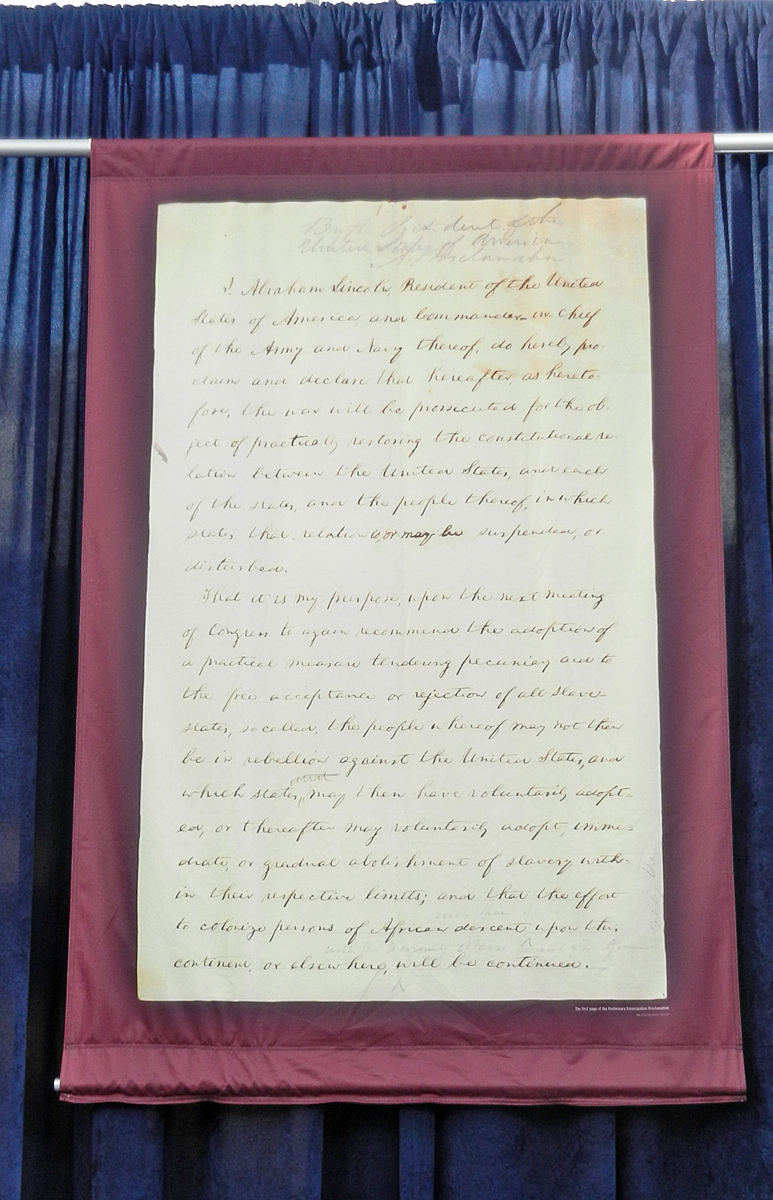 By the President of the
United States of America
A Proclamation
I, Abraham Lincoln, President of the United
States of America, and Commander-in-Chief
of the Army and Navy thereof, do hereby pro-
claim and declare that hereafter, as hereto-
fore, the war will be prosecuted for the ob-
ject of practically restoring the constitutional re-
lation between the United States, and each
of the states, and the people thereof, in which
states that relation is, or may be suspended, or
disturbed.
That it is my purpose, upon the next meeting
of Congress to again recommend the adoption of
a practical measure tendering pecuniary aid to
the free acceptance or rejection of all slave-
states, so called, the people whereof may not then
be in rebellion against the United States, and
and
which states, may then have voluntarily adopt-
ed, or thereafter may voluntarily adopt, imme-
diate, or gradual abolishment of slavery with-
in their respective limits; and that the effort
to colonize persons of African descent upon this
continent, or elsewhere, will be continued.
The first page of the Preliminary Emancipation Proclamation